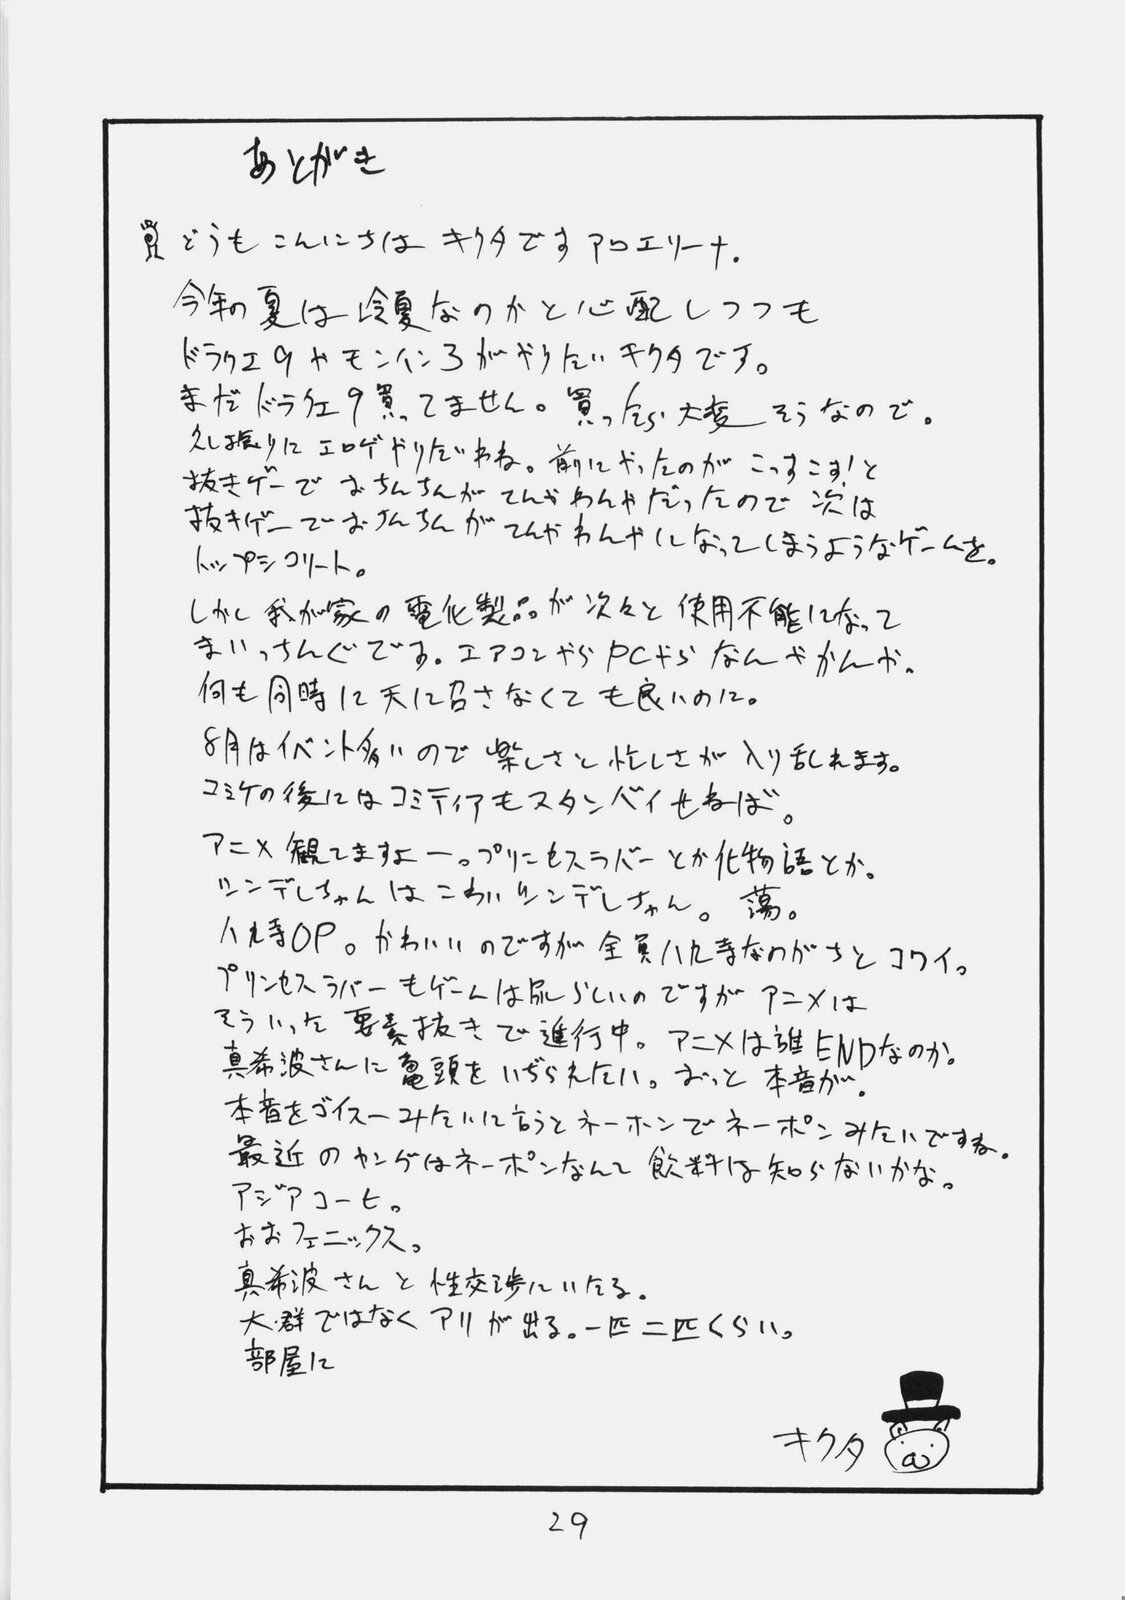 あとがき
どうもこんにちは キクタです アロエリーナ.
今年の夏は冷夏なのかと心配しつつも
ドラクエ9やモンハン3がやりたいキクタです。
まだドラクエ9買ってません。買ったら大変そうなので。
久し振りにエロゲやりたいわね。前にやったのが こっすこす!と
抜きゲーで おちんちんが てんやわんやだったので 次は
抜きゲーでおちんちんがてんやわんやになってしまうようなゲームを。
トップシコリート。
しかし我が家の電化製品が次々と使用不能になって
まいっちんぐです。エアコンやらPCやらなんやかんや。
何も同時に天に召さなくても良いのに。
8月はイベント多いので楽しさと忙しさが入り乱れます。
コミケの後にはコミティアもスタンバイせねば。
アニメ観てますよー。プリンセスラバーとか化物語とか。
ツンデレちゃんはこわいツンデレちゃん。蕩。
八九寺OP。かわいいのですが全員八九寺なのがちとコワイ。
プリンセスラバーもゲームは尻らしいのですがアニメは
そういった要素抜きで進行中。アニメは誰ENDなのか。
真希波さんに亀頭をいぢられたい。おっと本音が。
本音をゴイスーみたいに言うとネーホンでネーポンみたいですね。
最近のヤングはネーポンなんて飲料は知らないかな。
アジアコーヒ。
おおフェニックス。
真希波さんと性交渉にいたる。
大群ではなくアリが出る。一匹二匹くらい。
部屋に
キクタ
29